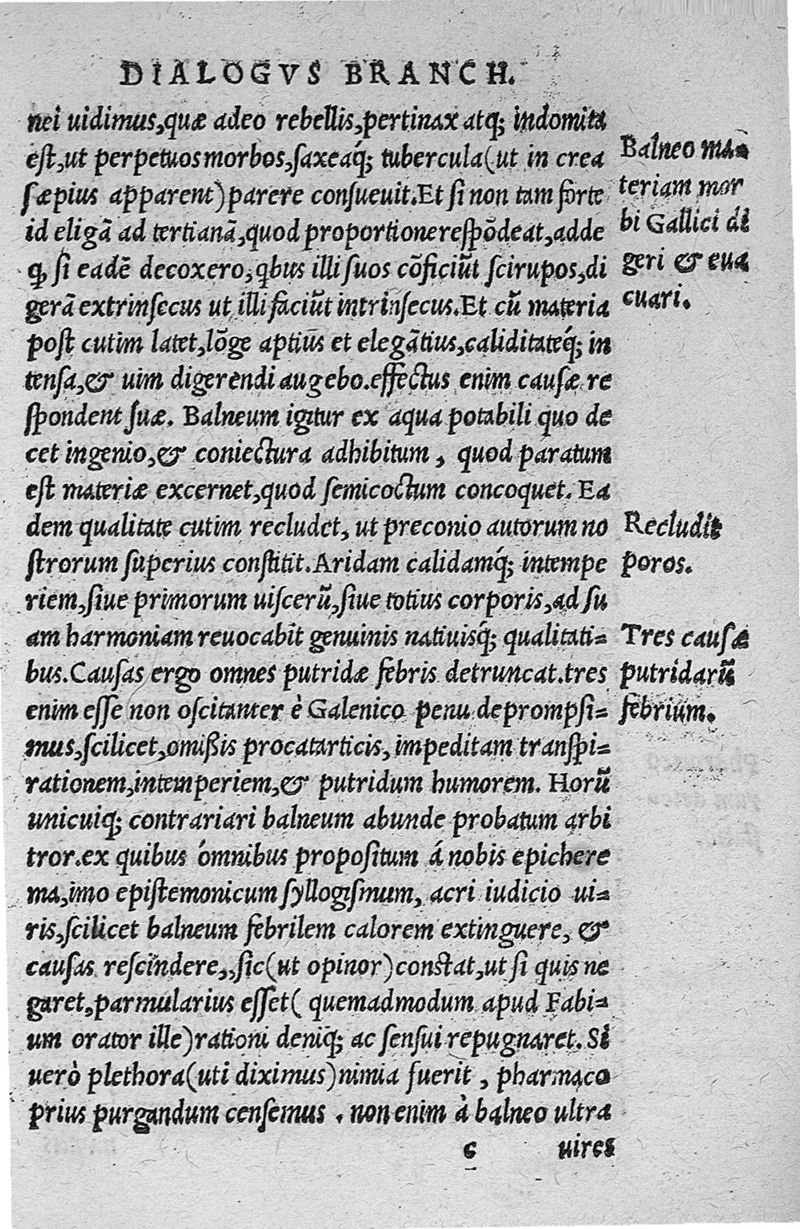 DIALOGVS BRANCH.
nei uidimus,quæ adeo rebellis,pertinax atq; indomita
est,ut perpetuos morbos,saxeaq́; tubercula(ut in crea
sæpius apparent)parere consueuit.Et si non tam forte
id eligã ad tertianã,quod proportione respõdeat,adde
q, si eadẽ decoxero,qbus illi suos cõficiũt scirupos,di
gerã extrinsecus ut illi faciũt intrinsecus.Et cũ materia
post cutim latet,lõge aptiũs et elegãtius,caliditateq́; in
tensa,& uim digerendi augebo.effectus enim causæ re
spondent suæ. Balneum igitur ex aqua potabili quo de
cet ingenio,& coniectura adhibitum, quod paratum
est materiæ excernet,quod semicoctum concoquet. Ea
dem qualitate cutim recludet, ut preconio autorum no
strorum superius constitit.Aridam calidamq́; intempe
riem,siue primorum uiscerũ,siue totius corporis,ad su
am harmoniam reuocabit genuinis natiuisq́; qualitati=
bus.Causas ergo omnes putridæ febris detruncat.tres
enim esse non oscitanter è Galenico penu deprompsi=
mus,scilicet,omißis procatarticis,impeditam transpi=
rationem,intemperiem,& putridum humorem. Horũ
unicuiq; contrariari balneum abunde probatum arbi
tror.ex quibus omnibus propositum á nobis epichere
ma,imo epistemonicum syllogismum, acri iudicio ui=
ris,scilicet balneum febrilem calorem extinguere, &
causas rescindere,,sic(ut opinor)constat,ut si quis ne
garet,parmularius esset( quemadmodum apud Fabi=
um orator ille)rationi deniq; ac sensui repugnaret. Si
uerò plethora(uti diximus)nimia fuerit , pharmaco
prius purgandum censemus . non enim à balneo ultra
c uires
Balneo ma=
teriam mor
bi Gallici di
geri & eua
cuari.
Recludit
poros.
Tres causæ
putridarũ
febrium.